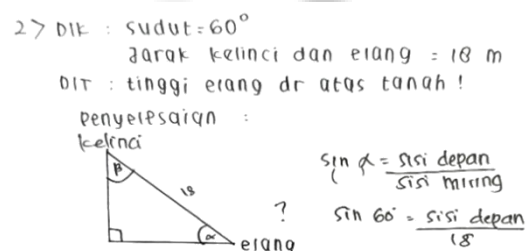 2> DIK : sudut = 60°
Jarak kelinci dan elang = 18 m
DIT : tinggi elang dr atas tanah!
Penyelesaian :
kelinci
β
18
α
elang
?
sin α = sisi depan / sisi miring
sin 60° = sisi depan / 18